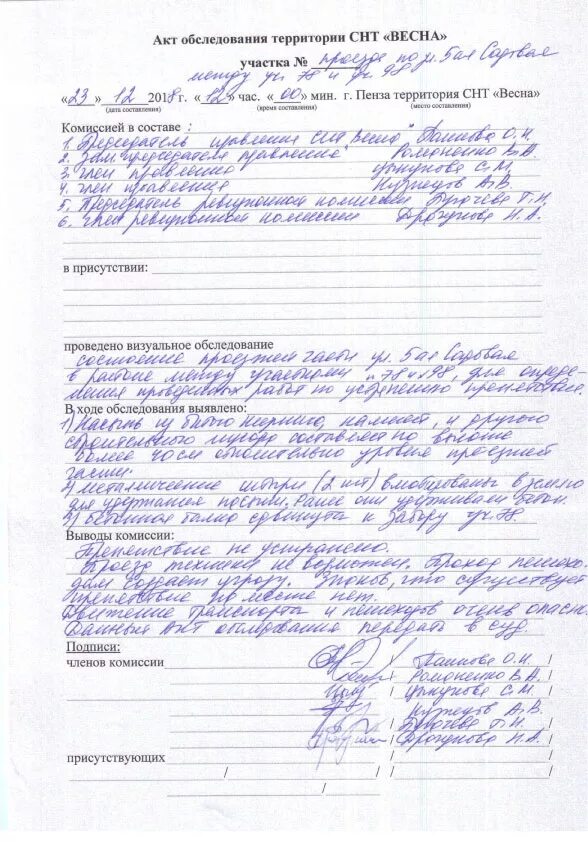 Акт обследования территории СНТ «ВЕСНА»
участка № проезда по ул. 5ая Садовая
между уч. 78 и уч. 98
«23» 12 2018 г. «12» час. «00» мин. г. Пенза территория СНТ «Весна»
(дата составления) (время составления) (место составления)
Комиссией в составе :
1. Председатель правления СНТ "Весна" О.И.
2. Зам. председателя правления Романенко В.А.
3. член правления С.М.
4. член правления А.В.
5. Председатель ревизионной комиссии Т.Н.
6. член ревизионной комиссии Н.А.
в присутствии:
проведено визуальное обследование
состояние проезжей части ул. 5ая Садовая
в районе между участками 78 и 98, для опреде-
ления проведенных работ по устранению препятствия.
В ходе обследования выявлено:
1) Насыпь из битого кирпича, камней, и другого
строительного мусора составляет по высоте
более относительно уровня проезжей
части.
2) металлические штыри (2 шт) вмонтированы в землю
для удержания насыпи. Ранее они удерживали бетон.
3) бетонная балка сдвинута к забору уч. 78.
Выводы комиссии:
Препятствие не устранено.
Проезд техники не возможен. Проход пешехо-
дам создает угрозу. Знаков, что существует
препятствие на месте нет.
Движение транспорта и пешеходов очень опасно.
Данный Акт обследования передать в суд.
Подписи:
членов комиссии / О.И. /
/ Романенко В.А. /
/ С.М. /
/ А.В. /
/ Т.Н. /
/ Н.А. /
присутствующих / /
/ /